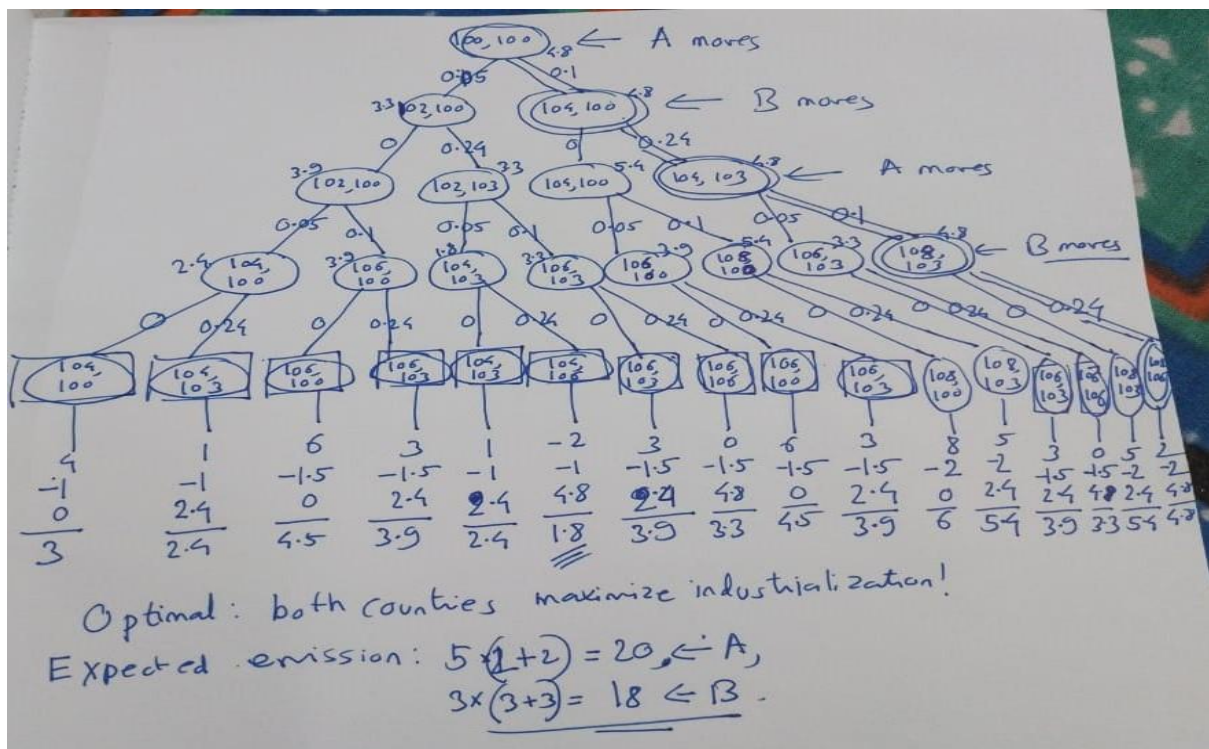 100, 100 4.8 ← A moves
0.05 0.1
3.3 102, 100 104, 100 4.8 ← B moves
0 0.24 0 0.24
3.9 102, 100 102, 103 3.3 104, 100 5.4 104, 103 4.8 ← A moves
0.05 0.1 0.05 0.1 0.05 0.1 0.05 0.1
2.4 104, 100 3.9 106, 100 1.8 104, 103 3.3 106, 103 106, 100 3.9 108, 100 5.4 106, 103 3.3 108, 103 4.8 ← B moves
0 0.24 0 0.24 0 0.24 0 0.24 0 0.24 0 0.24 0 0.24 0 0.24
104, 100 104, 103 106, 100 106, 103 104, 103 104, 106 106, 103 106, 106 106, 100 106, 103 108, 100 108, 103 106, 103 108, 103 108, 106
4 1 6 3 1 -2 3 0 6 3 8 5 3 0 5 2
-1 -1 -1.5 -1.5 -1 -1 -1.5 -1.5 -1.5 -1.5 -2 -2 -1.5 -1.5 -2 -2
0 2.4 0 2.4 2.4 4.8 2.4 4.8 0 2.4 0 2.4 2.4 4.8 2.4 4.8
3 2.4 4.5 3.9 2.4 1.8 3.9 3.3 4.5 3.9 6 5.4 3.9 3.3 5.4 4.8
Optimal: both counties maximize industrialization!
Expected emission: 5×(2+2) = 20, ← A,
3×(3+3) = 18 ← B.